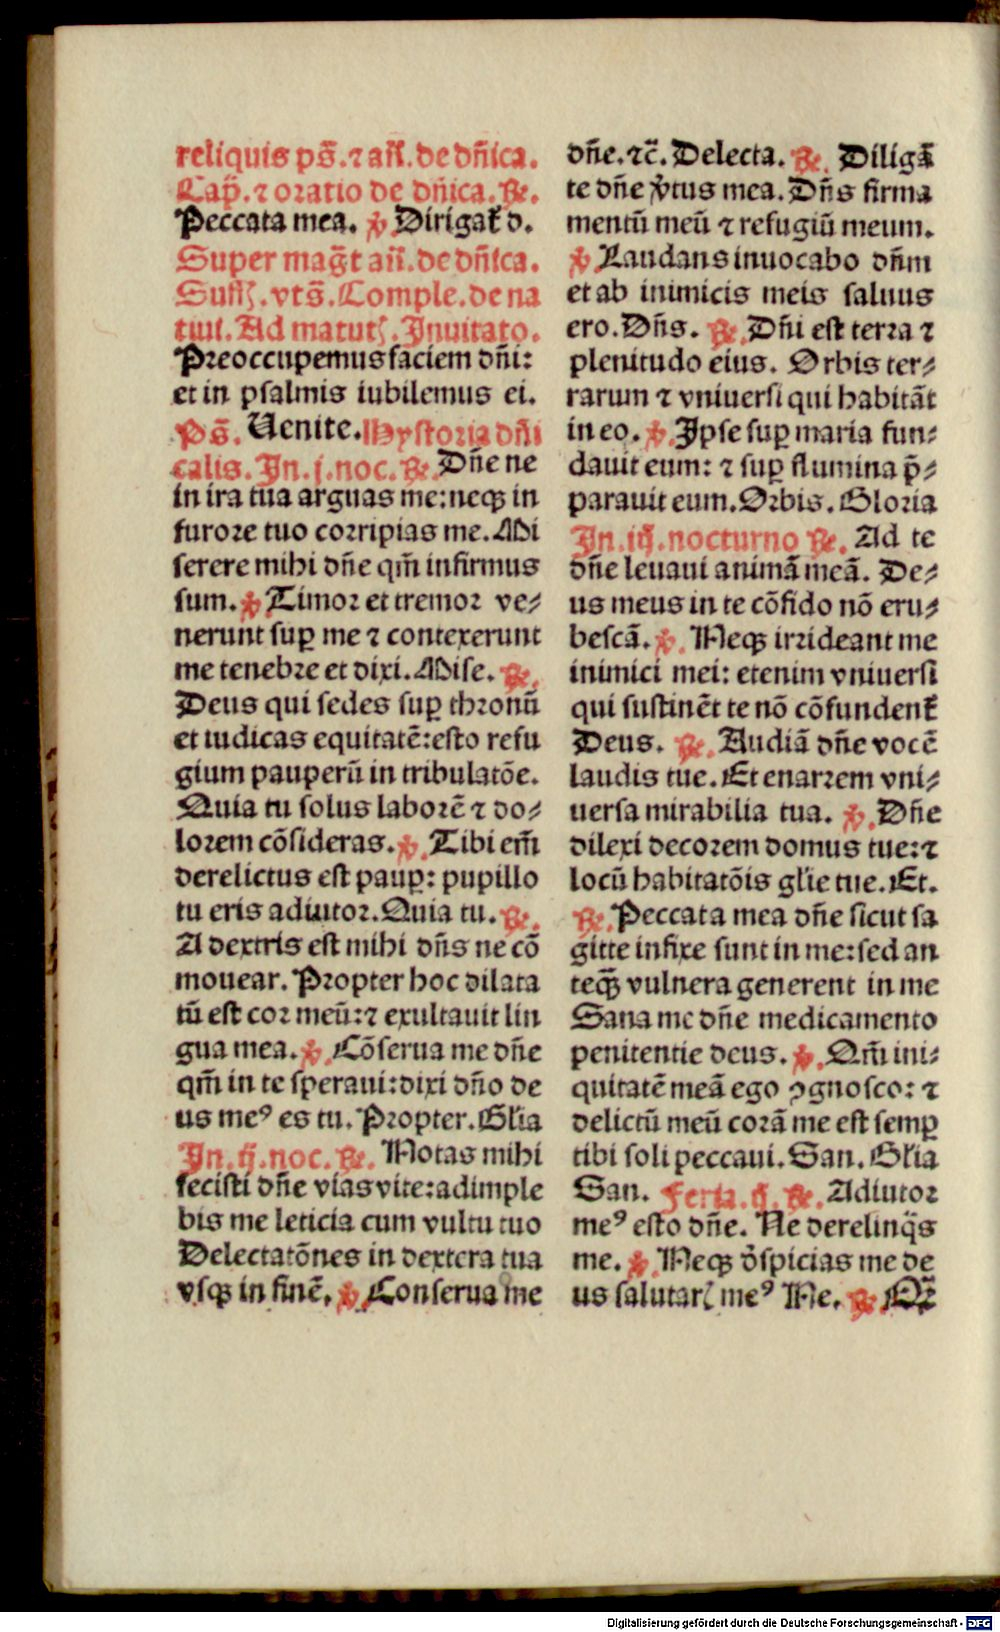 reliquis ps̄. ⁊ añ. de dñica.
Cap̄. ⁊ oratio de dñica. ℟.
Peccata mea. ℣. Dirigat᷑ d.
Super mag̅t añ. de dñica.
Suff. vts̄. Comple. de na
tiui. Ad matut. Inuitato.
Preoccupemus faciem dñi:
et in psalmis iubilemus ei.
Ps̄. Uenite. Hystoria dñi
calis. In. j. noc. ℟. Dñe ne
in ira tua arguas me: neqꝫ in
furore tuo corripias me. Mi
serere mihi dñe qm̄ infirmus
sum. ℣. Timor et tremor ve⸗
nerunt suꝑ me ⁊ contexerunt
me tenebre et dixi. Mise. ℟.
Deus qui sedes suꝑ thronū
et iudicas equitatē: esto refu
gium pauperū in tribulatōe.
Quia tu solus laborē ⁊ do⸗
lorem cōsideras. ℣. Tibi em̄
derelictus est pauꝑ: pupillo
tu eris adiutor. Quia tu. ℟.
A dextris est mihi dñs ne cō
mouear. Propter hoc dilata
tū est cor meū: ⁊ exultauit lin
gua mea. ℣. Cōserua me dñe
qm̄ in te speraui: dixi dño de
us meꝰ es tu. Propter. Gl̄ia
In. ij. noc. ℟. Notas mihi
fecisti dñe vias vite: adimple
bis me leticia cum vultu tuo
Delectatōnes in dextera tua
vsqꝫ in finē. ℣. Conserua me
dñe. ⁊c̄. Delecta. ℟. Diligā
te dñe v̓tus mea. Dñs firma
mentū meū ⁊ refugiū meum.
℣. Laudans inuocabo dñm
et ab inimicis meis saluus
ero. Dñs. ℟. Dñi est terra ⁊
plenitudo eius. Orbis ter⸗
rarum ⁊ vniuersi qui habitāt
in eo. ℣. Ipse suꝑ maria fun⸗
dauit eum: ⁊ suꝑ flumina p̄⸗
parauit eum. Orbis. Gloria
In. iij. nocturno ℟. Ad te
dñe leuaui animā meā. De⸗
us meus in te cōfido nō eru⸗
bescā. ℣. Neqꝫ irrideant me
inimici mei: etenim vniuersi
qui sustinēt te nō cōfundent᷑
Deus. ℟. Audiā dñe vocē
laudis tue. Et enarrem vni⸗
uersa mirabilia tua. ℣. Dñe
dilexi decorem domus tue: ⁊
locū habitatōis gl̄ie tue. Et.
℟. Peccata mea dñe sicut sa
gitte infixe sunt in me: sed an
teqꝫ̄ vulnera generent in me
Sana me dñe medicamento
penitentie deus. ℣. Qm̄ ini⸗
quitatē meā ego ꝯgnosco: ⁊
delictū meū corā me est semꝑ
tibi soli peccaui. San. Gl̄ia
San. Feria. ij. ℟. Adiutor
meꝰ esto dñe. Ne derelinq̄s
me. ℣. Neqꝫ d̓spicias me de
us salutar meꝰ Ne. ℟.
Digitalisierung gefördert durch die Deutsche Forschungsgemeinschaft - DFG